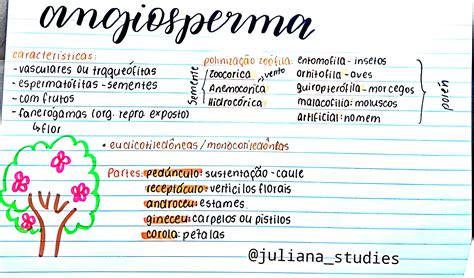 angiosperma
características:
- vasculares ou traqueófitas
- espermatófitas - sementes
- com frutos
- fanerógamas (org. repro exposto)
↳ flor
polinização zoófila:
Semente
Zoocorica
Anemocorica
vento
Hidrocórica
entomofila - insetos
ornitofila - aves
quiropterofila - morcegos
malacofilia: moluscos
artificial: homem
polén
• eudicotiledôneas / monocotiledôneas
Partes: pedúnculo: sustentação - caule
receptáculo: verticilos florais
androceu: estames
gineceu: carpelos ou pistilos
corola: petalas
@juliana_studies